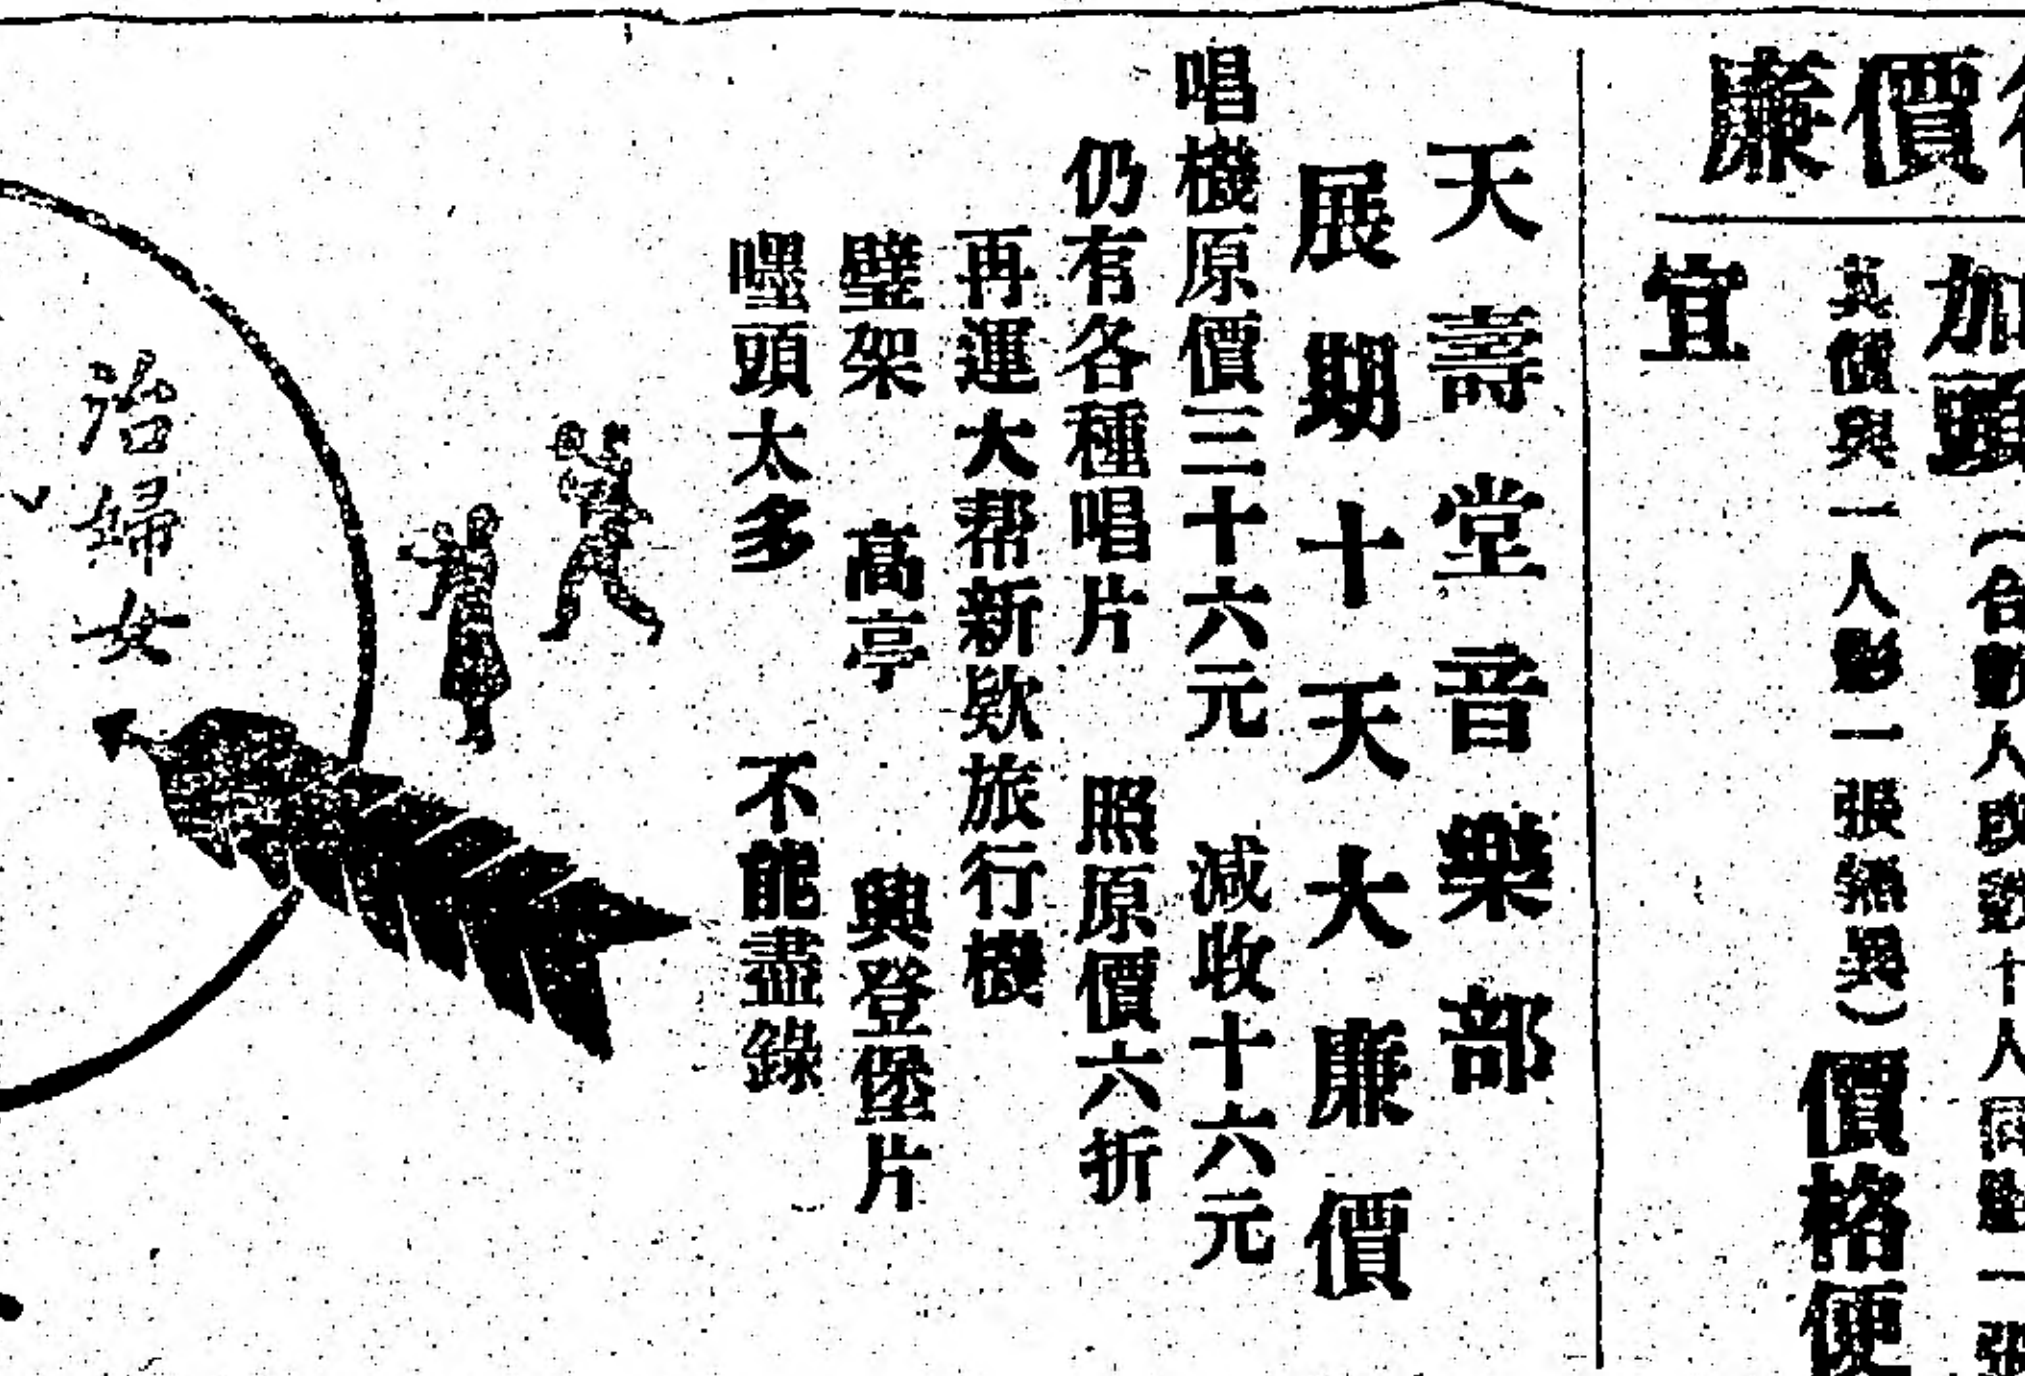 價廉
加頭(合數人或數十人同壓一張
真價與一人影一張無異)價格便
宜
天壽堂音樂部
展期十天大廉價
唱機原價三十六元 減收十六元
仍有各種唱片 照原價六折
再運大帮新欵旅行機
壁架 高亭 興登堡片
嘿頭太多 不能盡錄
治婦女